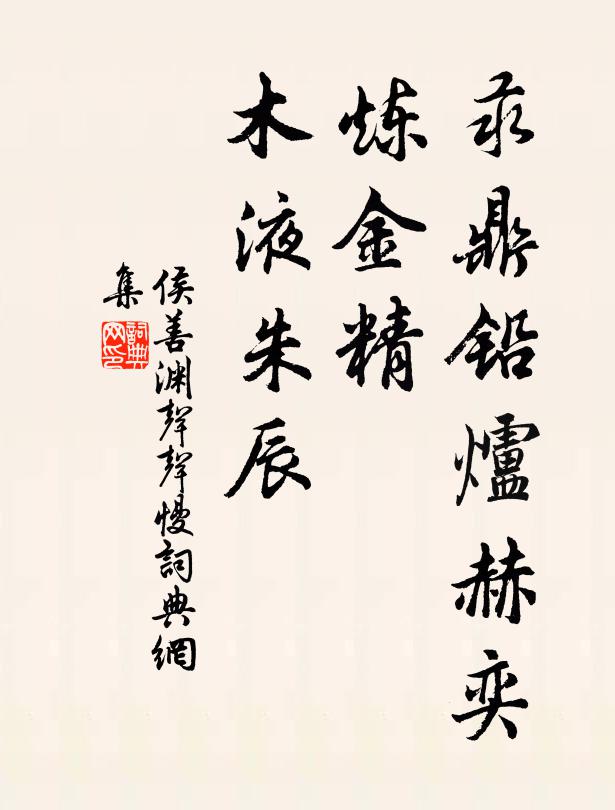 汞鼎鉛爐赫奕
煉金精
木液朱辰
侯善渊聲聲慢詞典網
集
詞典
网印